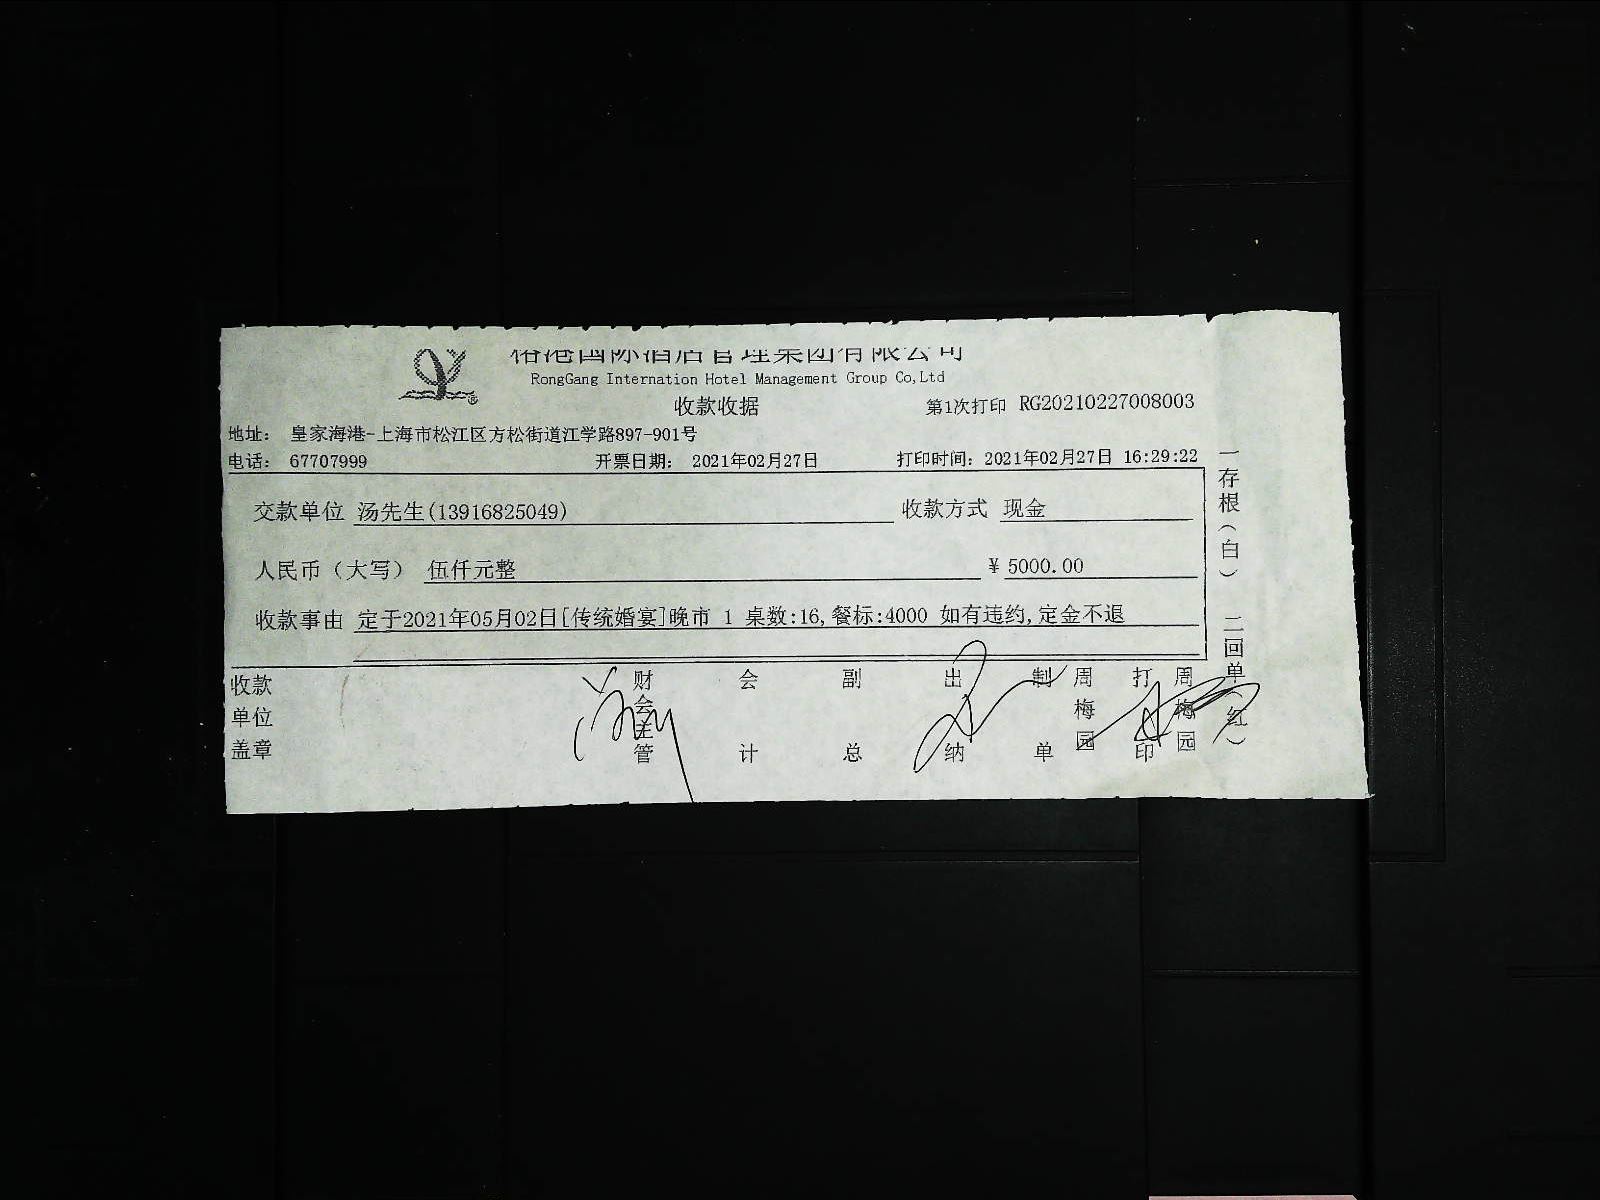 榕港国际酒店管理集团有限公司
RongGang Internation Hotel Management Group Co,Ltd
收款收据
第1次打印 RG20210227008003
地址： 皇家海港-上海市松江区方松街道江学路897-901号
电话： 67707999 开票日期： 2021年02月27日 打印时间：2021年02月27日 16:29:22
交款单位 汤先生(13916825049) 收款方式 现金
人民币（大写） 伍仟元整 ￥5000.00
收款事由 定于2021年05月02日[传统婚宴]晚市 1 桌数:16,餐标:4000 如有违约,定金不退
收款单位盖章 财会主管 会计 副总 出纳 制单 周梅园 打印 周梅园
一存根（白） 二回单（红）